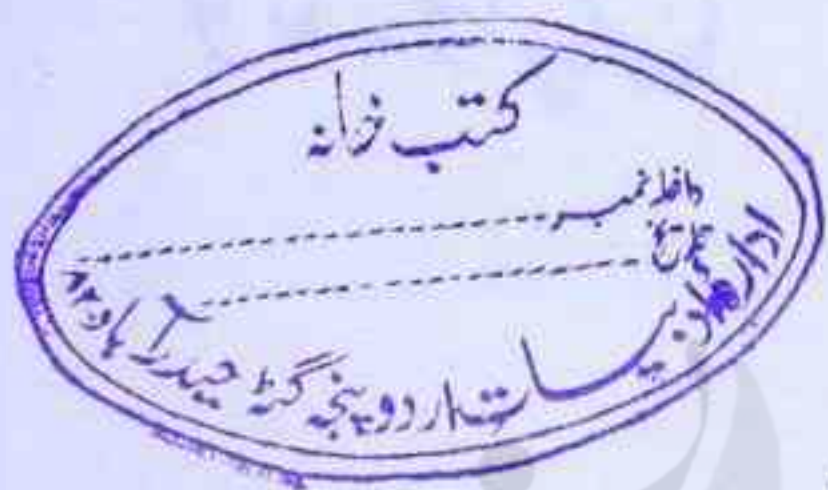 کتب خانہ
داخلہ نمبر
تاریخ
ادارہ ادبیات اردو پنجہ گٹہ حیدرآباد ۸۲